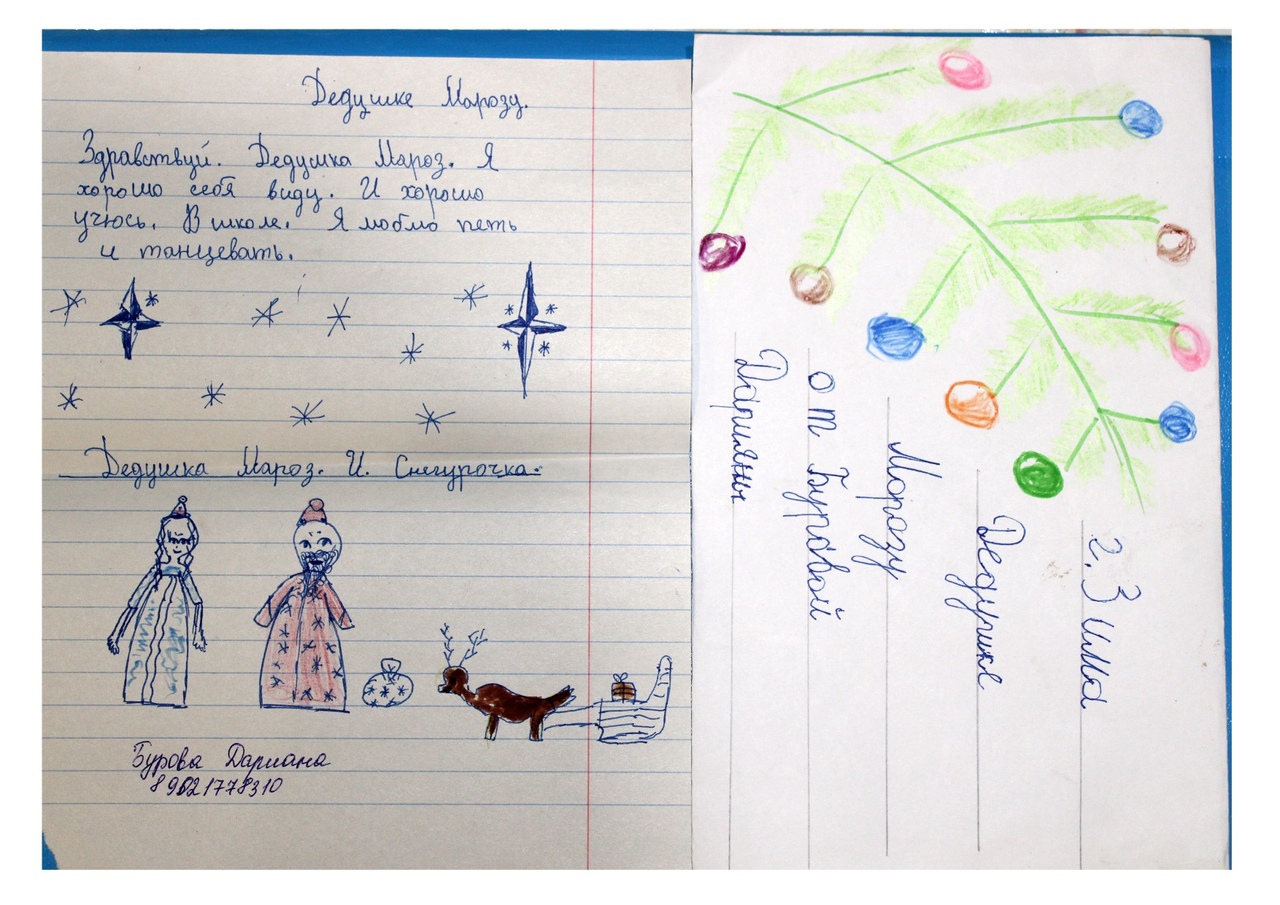 Дедушке Марозу.
Здравствуй. Дедушка Мароз. Я
хорошо себя виду. И хорошо
учюсь. В школе. Я люблю петь
и танцевать.
Дедушка Мароз. И. Снегурочка.
Бурова Дариана
89021778310
г. Зима
Дедушке
Морозу
от Буровой
Дарияны